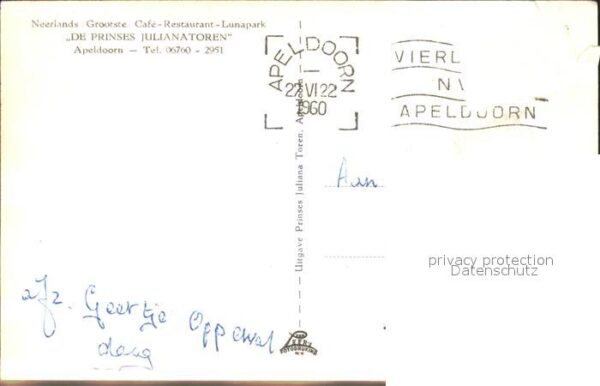 Neerlands Grootste Café-Restaurant-Lunapark
„DE PRINSES JULIANATOREN"
Apeldoorn — Tel. 06760 - 2951
APELDOORN
22 VI 22
1960
VIERD
N
APELDOORN
Uitgave Prinses Juliana Toren, Apeldoorn
Aan
privacy protection
Datenschutz
afz. Geertje Oppewal
daag
FOTODRUKING